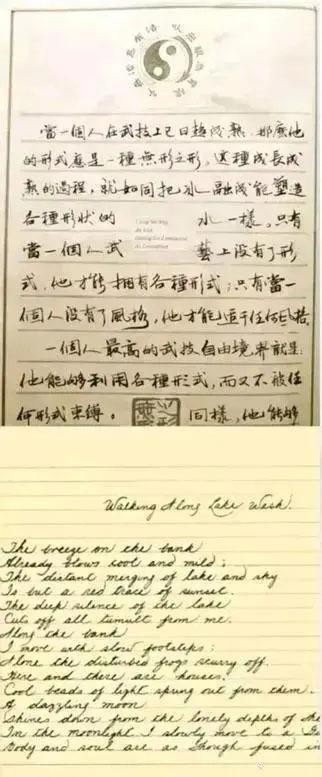 當一個人在武技上已日趨成熟，那麼他
的形式應是一種無形之形。這種成長成
熟的過程，就如同把冰融成能塑造
各種形狀的 水一樣。只有
當一個人武 藝上没有了形
式，他才能拥有各種形式；只有當一
個人没有了風格，他才能适于任何風格。
一個人最高的武技自由境界就是：
他能够利用各種形式，而又不被任
何形式束縛。 同樣，他能够
Walking Along Lake Wash.
The breeze on the bank
Already blows cool and mild;
The distant merging of lake and sky
Is but a red trace of sunset.
The deep silence of the lake
Cuts off all tumult from me.
Along the bank
I move with slow footsteps:
Alone the disturbed frogs scurry off.
Here and there are houses,
Cool beads of light spring out from them.
A dazzling moon
Shines down from the lonely depths of the
In the moonlight I slowly move to a
Body and soul are as though fused in